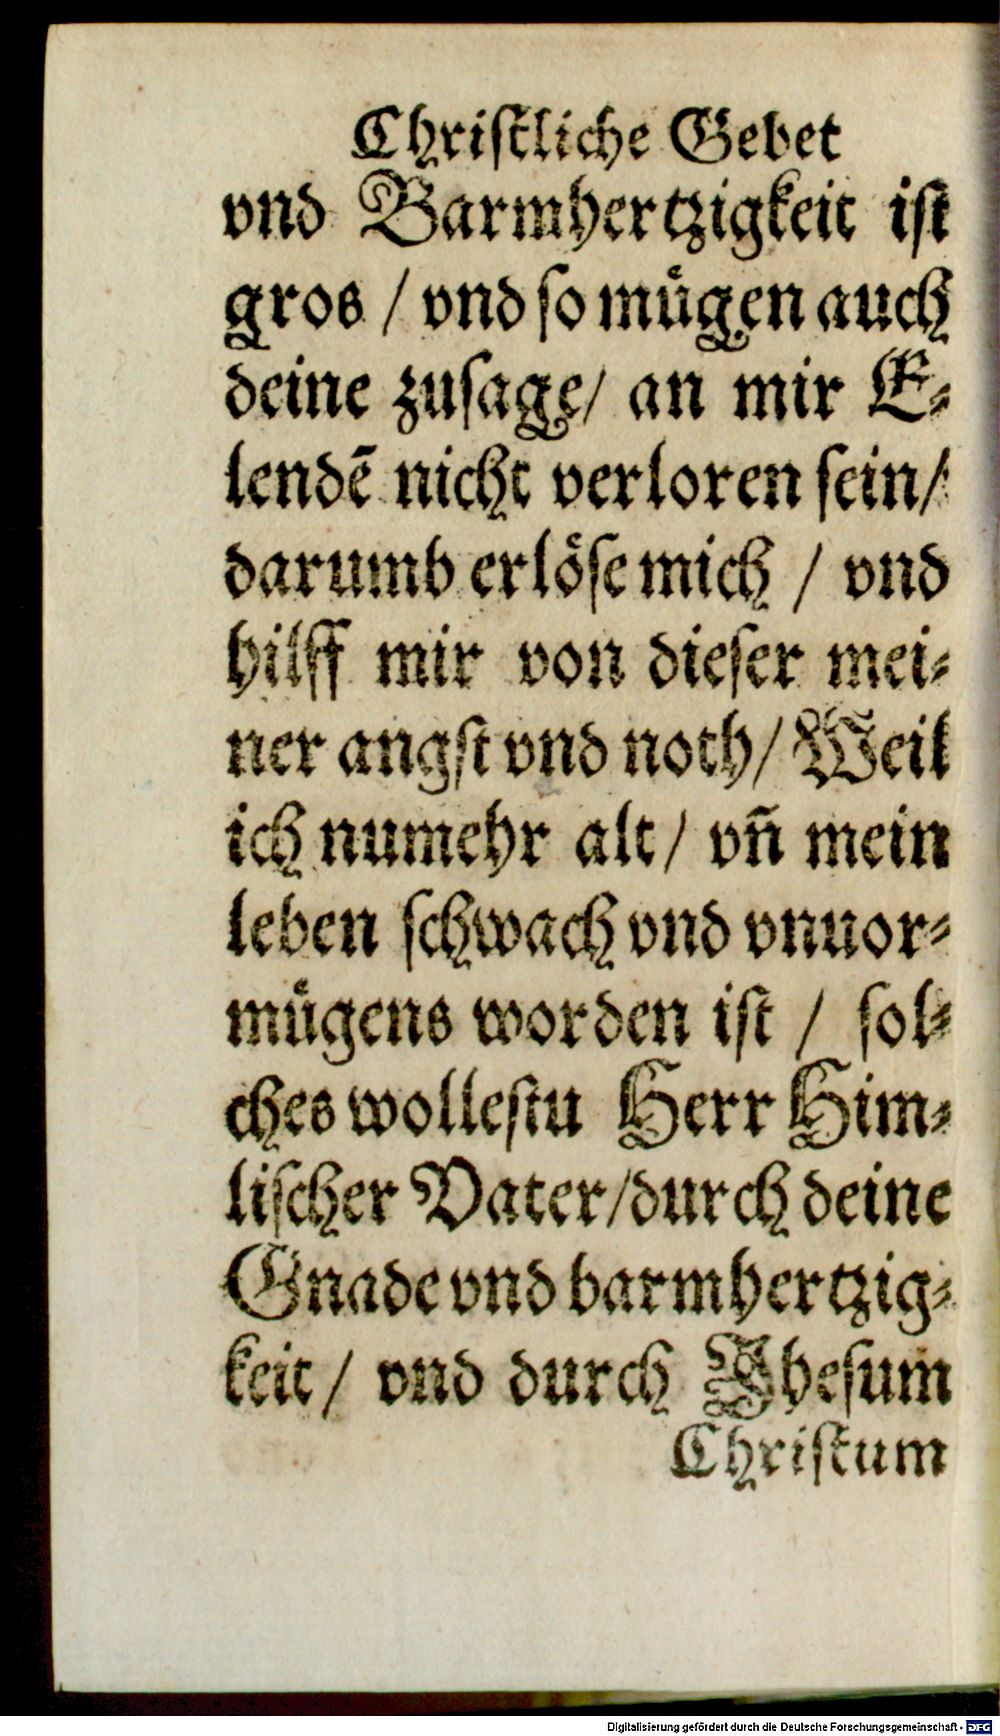 Chriſtliche Gebet
vnd Barmhertzigkeit iſt
gros / vnd ſo muͤgen auch
deine zuſage/ an mir E⸗
lendē nicht verloren ſein/
darumb erloͤſe mich / vnd
hilff mir von dieſer mei⸗
ner angſt vnd noth/ Weil
ich numehr alt/ vn̄ mein
leben ſchwach vnd vnuor⸗
muͤgens worden iſt / ſol⸗
ches wolleſtu Herr Him⸗
liſcher Vater/durch deine
Gnade vnd barmhertzig⸗
keit/ vnd durch Jheſum
Chriſtum
Digitalisierung gefördert durch die Deutsche Forschungsgemeinschaft - DFG